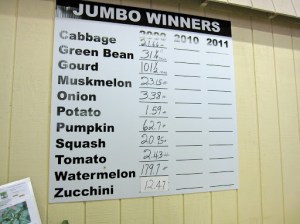 JUMBO WINNERS
2009 2010 2011
Cabbage
Green Bean
Gourd
Muskmelon
Onion 3.38
Potato 1.59
Pumpkin 62.7
Squash 20.95
Tomato 2.43
Watermelon 179.7
Zucchini 12.47